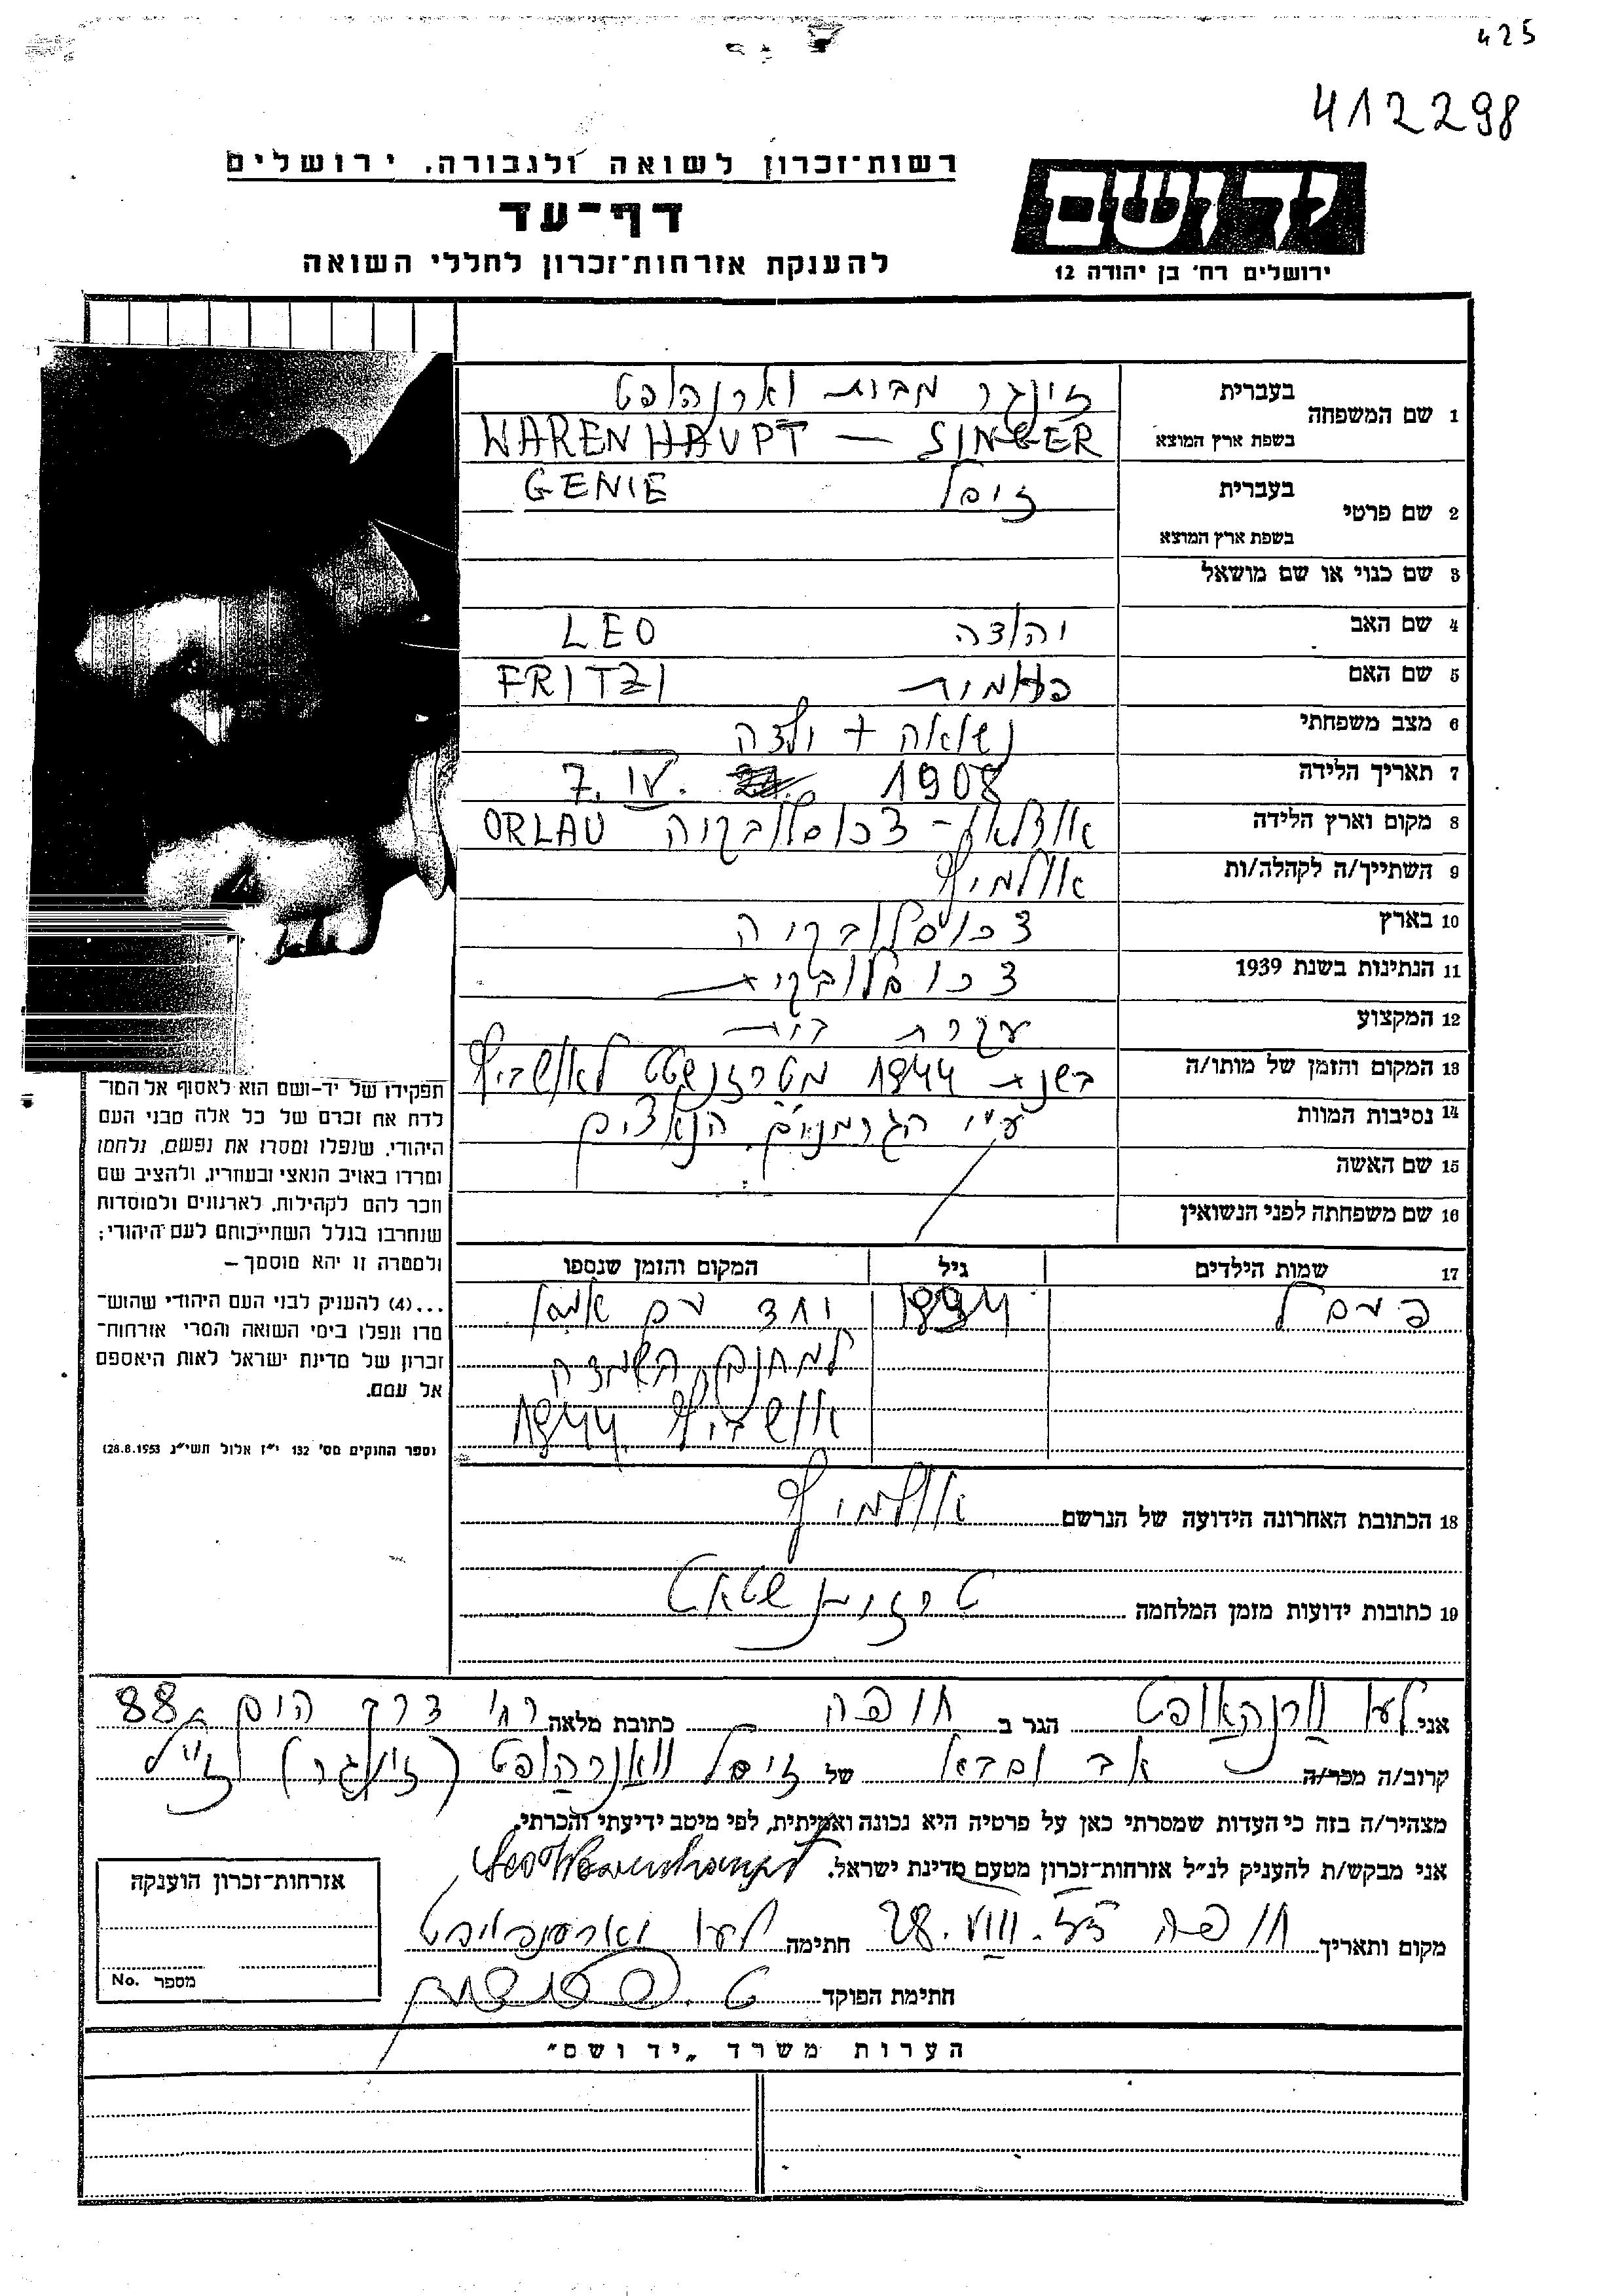 425
412298
רשות־זכרון לשואה ולגבורה, ירושלים
דף־עד
להענקת אזרחות־זכרון לחללי השואה
יד ושם
ירושלים רח' בן יהודה 12
1 שם המשפחה
בעברית זינגר מבית וארנהופט
בשפת ארץ המוצא WARENHAUPT — SINGER
2 שם פרטי
בעברית זיסל GENIE
בשפת ארץ המוצא
3 שם כנוי או שם מושאל
4 שם האב יהודה LEO
5 שם האם FRITZI
6 מצב משפחתי נשואה + ילדה
7 תאריך הלידה 7. IV. 1908
8 מקום וארץ הלידה צכוסלובקיה ORLAU
9 השתייך/ה לקהלה/ות אולמיץ
10 בארץ צכוסלובקיה
11 הנתינות בשנת 1939 צכוסלובקית
12 המקצוע עקרת בית
13 המקום והזמן של מותו/ה בשנת 1944 מטרזנשטט לאושביץ
14 נסיבות המוות ע"י הגרמנים הנאצים
15 שם האשה
16 שם משפחתה לפני הנשואין
17 שמות הילדים גיל המקום והזמן שנספו
1934 יחד עם אמא
למחנה השמדה
אושביץ 1944
18 הכתובת האחרונה הידועה של הנרשם אולמיץ
19 כתובות ידועות מזמן המלחמה טרזינשטאט
תפקידו של יד־ושם הוא לאסוף אל המו־
לדת את זכרם של כל אלה מבני העם
היהודי, שנפלו ומסרו את נפשם, נלחמו
ומרדו באויב הנאצי ובעוזריו, ולהציב שם
וזכר להם לקהילות, לארגונים ולמוסדות
שנחרבו בגלל השתייכותם לעם היהודי;
ולמטרה זו יהא מוסמך —
...(4) להענקת לבני העם היהודי שהוש־
מדו ונפלו בימי השואה והמרי אזרחות־
זכרון של מדינת ישראל לאות היאספם
אל עמם.
(ספר החוקים מס' 132 י"ז אלול תשי"ג 28.8.1953)
אני לעו וורנהאופט הגר ב חיפה כתובת מלאה רח' דרך הים 88
קרוב/ה מכר/ה אב של זיסל ווארנהופט (זינגר) ז"ל
מצהיר/ה בזה כי העדות שמסרתי כאן על פרטיה היא נכונה ואמיתית, לפי מיטב ידיעתי והכרתי.
אני מבקש/ת להעניק לנ"ל אזרחות־זכרון מטעם מדינת ישראל. Leo Warenhaupt
מקום ותאריך חיפה 28. VIII. חתימה לעו
חתימת הפוקד
אזרחות־זכרון הוענקה
מספר No.
הערות משרד "יד ושם"